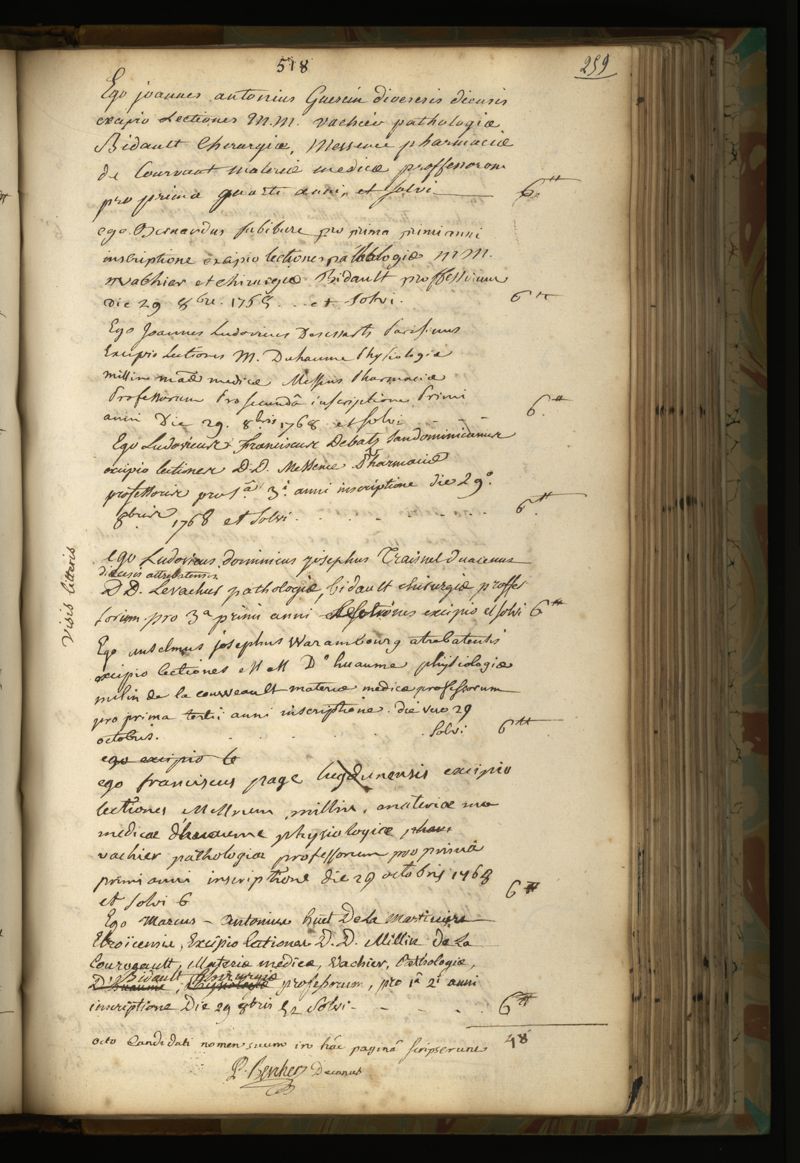 518
259
Ego joannes antonius Guerin diocesis
excipio Lectiones M.M. vachier pathologiæ
Bidault Chirurgiæ, Messence pharmaciæ
de Courvault Materiæ medicæ professorum
pro prima quarti anni, et solvi 6tt
ego Bernardus pro prima primi anni
inscriptione excipio lectiones pathologiæ MM.
vachier et chirurgiæ Bidault professorum
die 29 8bre. 1768 et solvi. 6tt
Ego Joannes Ludovicus Dessessarts Parisinus
Excipio Lectiones M. Duhaume Physiologiæ
millin mat. medicæ Messens Pharmaciæ
Professorum Pro secundâ inscriptione Primi
anni Die 29. 8bris 1768 et solvi 6tt
Ego Ludovicus Franciscus Debatz Sandominicanus
excipio lectiones D.D. Messence Pharmaciæ
professoris pro 1.â 3.i anni inscriptione die 29.o
8bris 1768 et solvi 6tt
Visis litteris
ego Ludovicus dominicus josephus Traisnel duacenus
diecesis attrebatensis
D.D. Levacher pathologiæ, bidault chirurgiæ profes
sorum pro 3a primi anni excipio et solvi 6tt
Ego anselmus josephus Warambourg atrebatensis
excipio lectiones M M D. huaume physiologiæ
milin de la courveault materiæ medicæ professorum
pro prima tertii anni inscriptione. die 29
octobris. solvi 6tt
ego excipio le
ego franciscus page lugdunensis excipio
lectiones MMrum millin, materiæ me
medicæ d'huaume physiologiæ phar
vachier pathologiæ professorum pro primâ
primi anni inscriptione die 29 octobris 1768
et solvi 6 6tt
Ego Marcus-Antonius hüet De la Martiniere
Ebroïcensis, Excipio Lationes D.D. Millin de La
Courveault, Materiæ medicæ, Vachier, Pathologiæ,
Bidault Chirurgiæ
D'huaume, Physiologiæ professorum, pro 1a 2i anni
inscriptione Die 29 8bris et Solvi 6tt
octo Candidati nomen suum in hâc paginâ scripserunt 48
P. Bercher Decanus